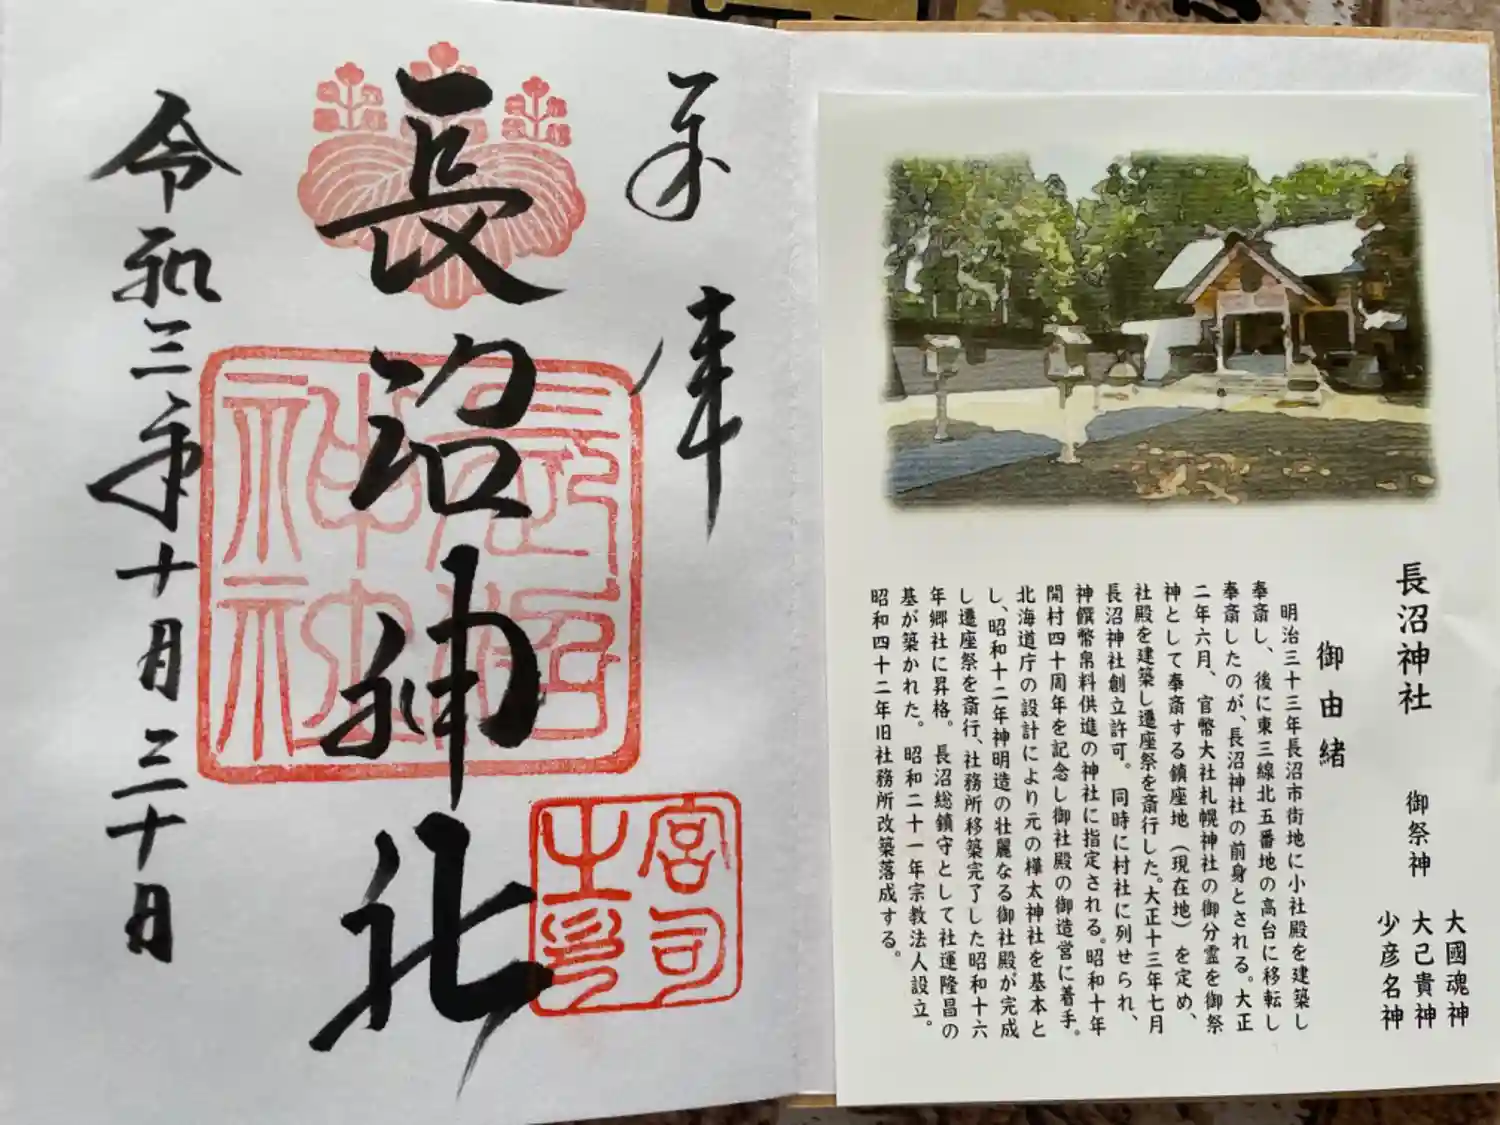 長沼神社
御祭神
大國魂神
大己貴神
少彦名神
御由緒
明治三十三年長沼市街地に小社殿を建築し
奉斎し、後に東三線北五番地の高台に移転し
奉斎したのが、長沼神社の前身とされる。大正
二年六月、官幣大社札幌神社の御分霊を御祭
神として奉斎する鎮座地（現在地）を定め、
社殿を建築し遷座祭を斎行した。大正十三年七月
長沼神社創立許可。同時に村社に列せられ、
神饌幣帛料供進の神社に指定される。昭和十年
開村四十周年を記念し御社殿の御造営に着手。
北海道庁の設計により元の樺太神社を基本と
し、昭和十二年神明造の壮麗なる御社殿が完成
し遷座祭を斎行、社務所移築完了した昭和十六
年郷社に昇格。長沼総鎮守として社運隆昌の
基が築かれた。昭和二十一年宗教法人設立。
昭和四十二年旧社務所改築落成する。
奉拝
長沼神社
令和三年十月三十日
長沼
神社
宮司
之印